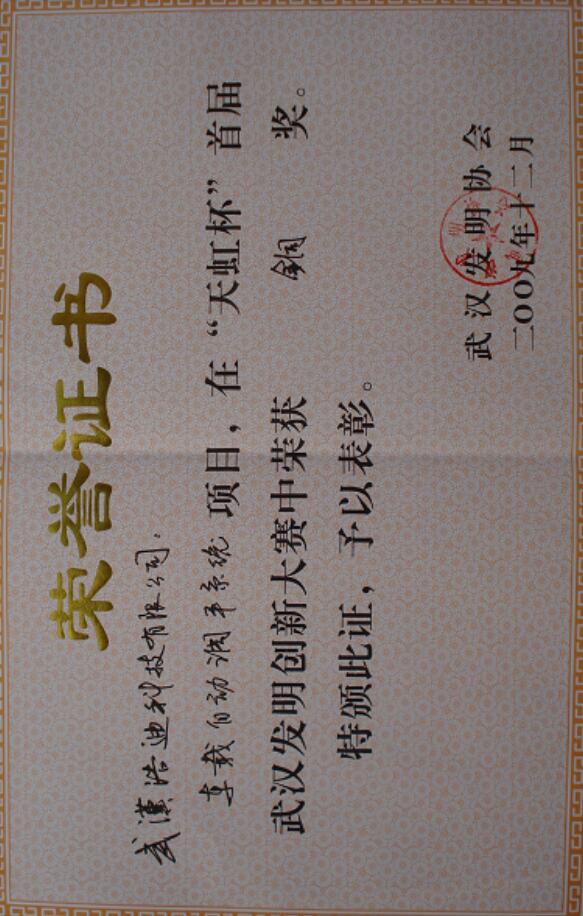 荣誉证书
武漢浩迪科技有限公司:
车载自动调平系统项目，在“天虹杯”首届
武汉发明创新大赛中荣获 铜 奖。
特颁此证，予以表彰。
武汉发明协会
二〇〇九年十二月